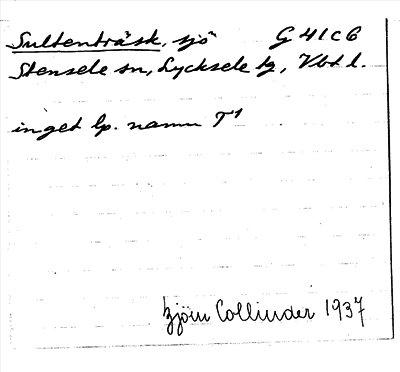 Sultenträsk, sjö G 41 c 6
Stensele sn, Lycksele tg, Vbt l.
inget lp. namn T¹
Björn Collinder 1937